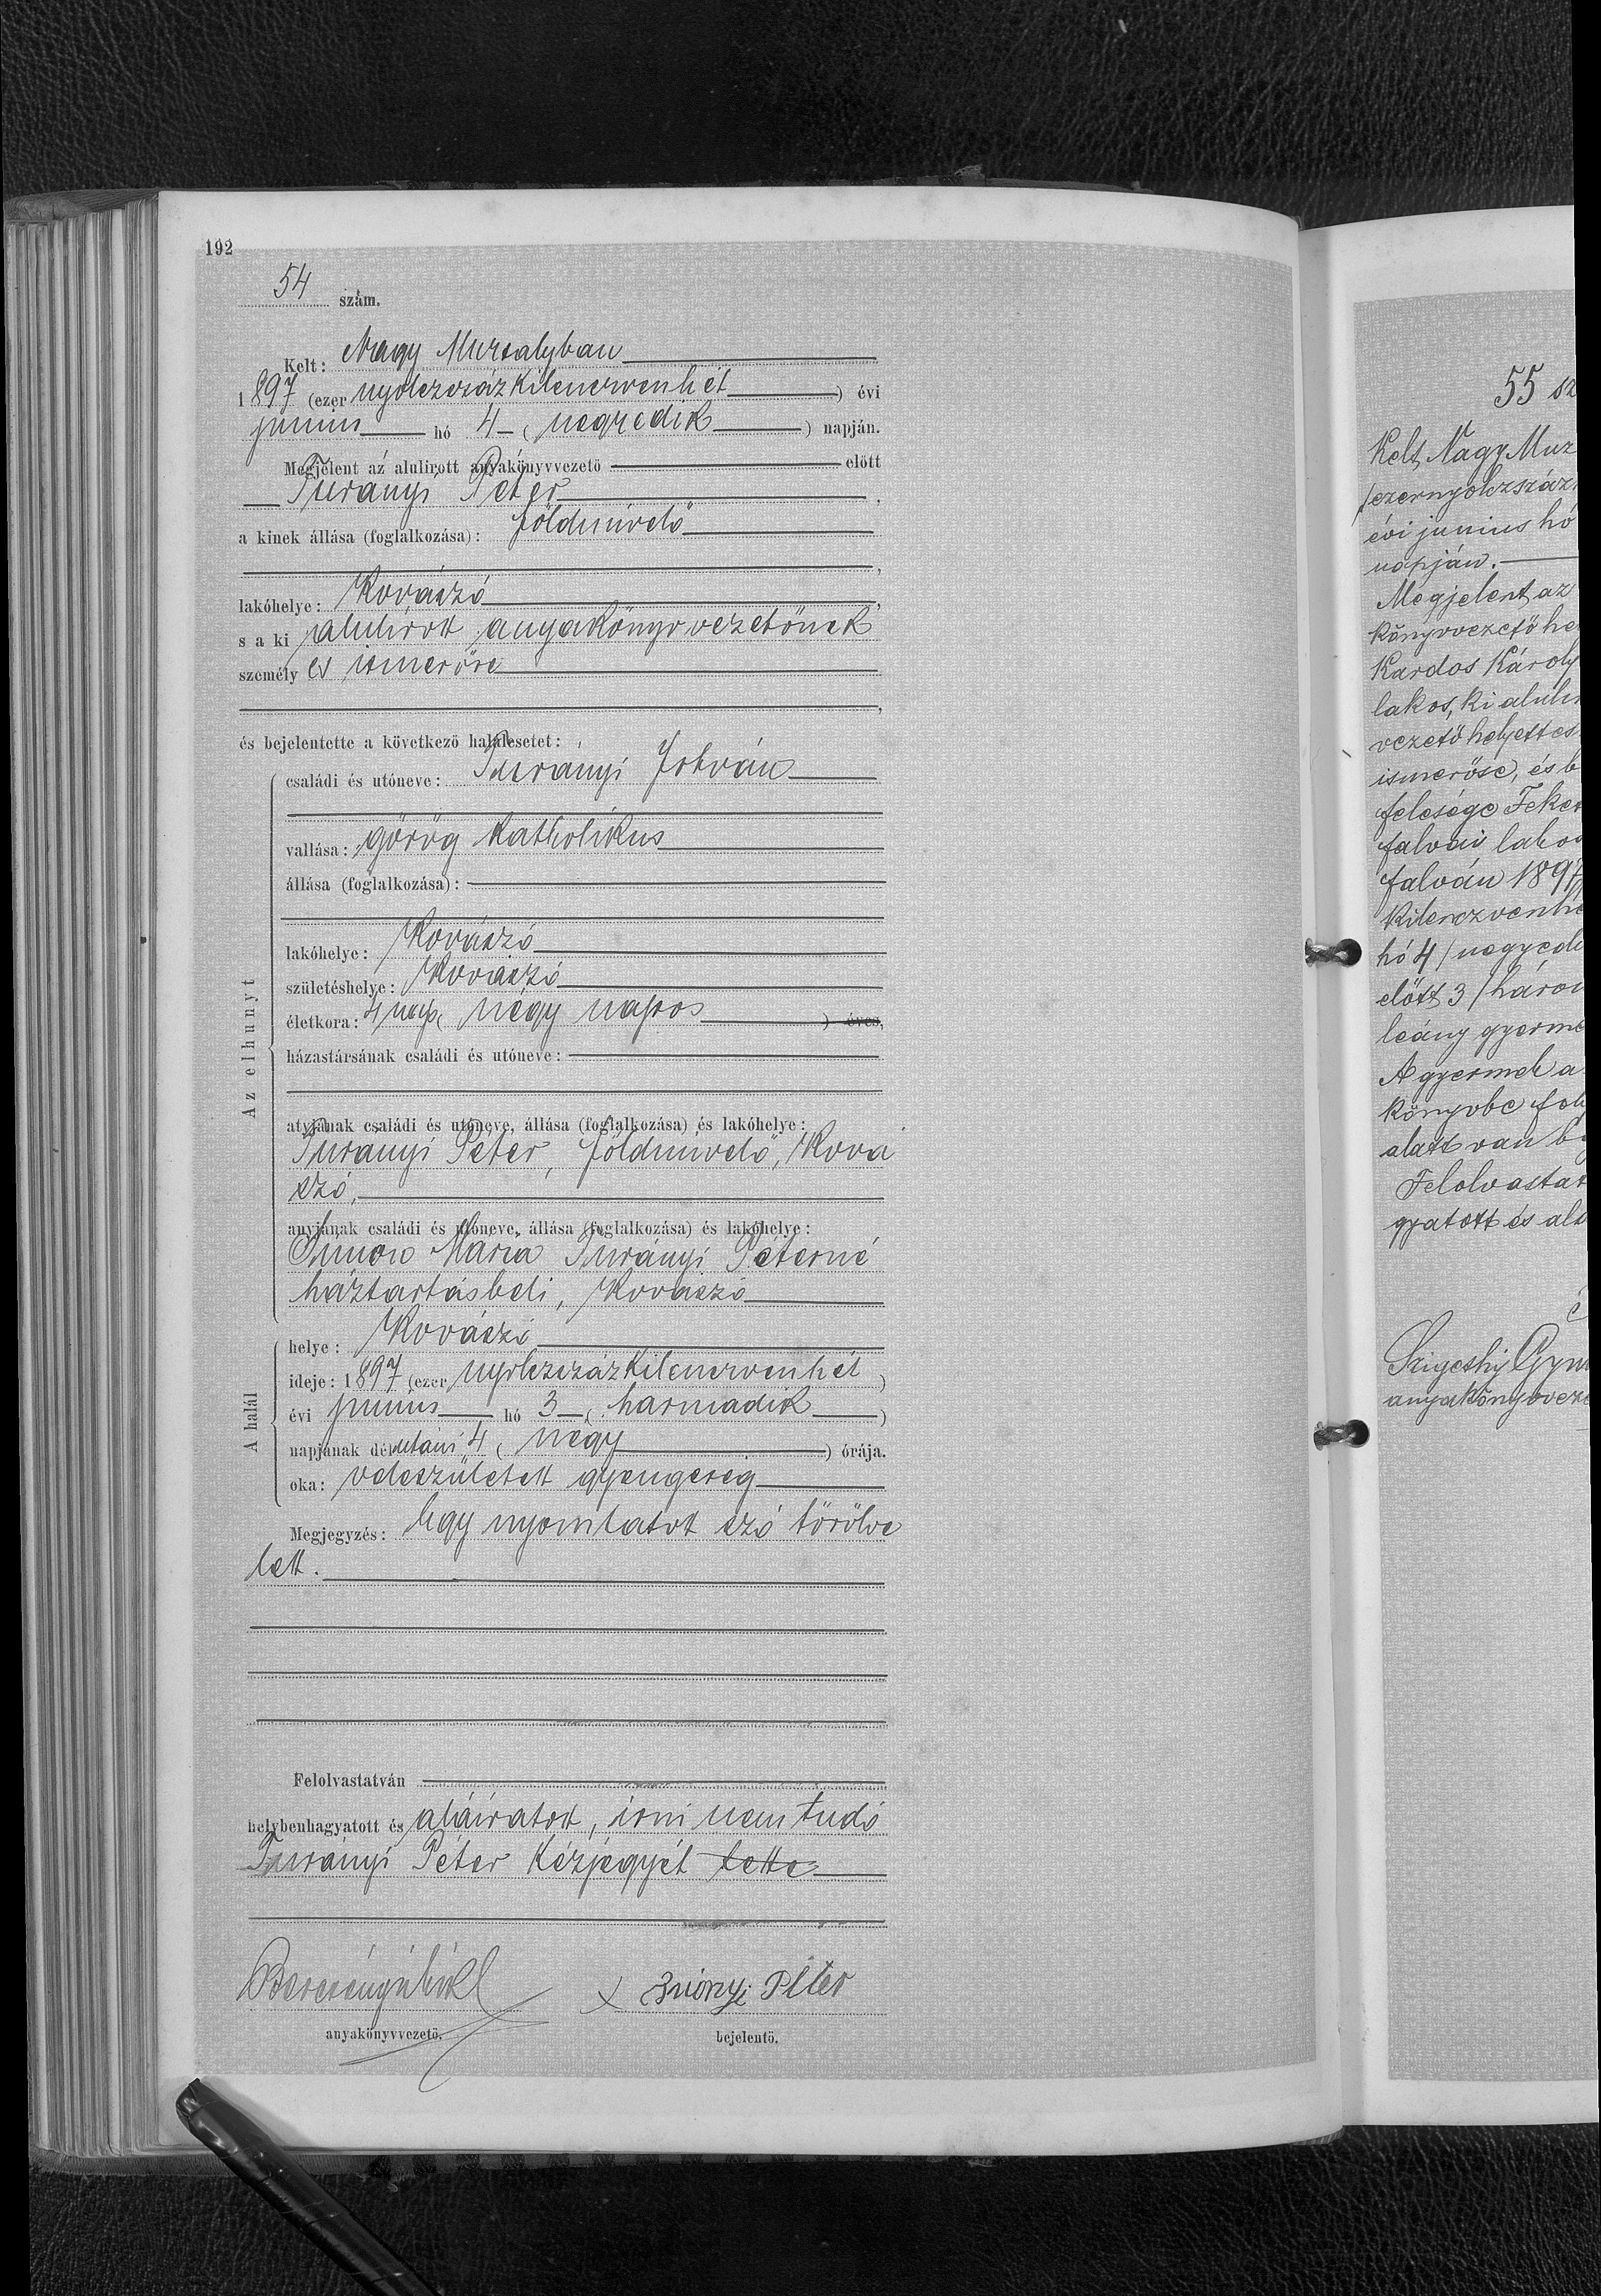 192
54 szám.
Kelt: Nagy Muzsalyban
1897 (ezer nyolczszázkilenczvenhét) évi
junius hó 4 (negyedik) napján.
Megjelent az alulirott anyakönyvvezető előtt
Turanyi Péter,
a kinek állása (foglalkozása): földmivelő
,
lakóhelye: Kovászó,
s a ki alulirott anyakönyvvezetőnek
személyes ismerőse
,
és bejelentette a következő halálesetet:
Az elhunyt
családi és utóneve: Turanyi István
vallása: görög katholikus
állása (foglalkozása):
lakóhelye: Kovászó
születéshelye: Kovászó
életkora: 4 nap (négy napos) éves,
házastársának családi és utóneve:
atyjának családi és utóneve, állása (foglalkozása) és lakóhelye:
Turanyi Péter, földmivelő, Ková
szó,
anyjának családi és utóneve, állása (foglalkozása) és lakóhelye:
Simon Mária Turányi Péterné
háztartásbeli, Kovászó
A halál
helye: Kovászó
ideje: 1897 (ezer nyolczszázkilenczvenhét)
évi junius hó 3 (harmadik)
napjának délutáni 4 (négy) órája.
oka: veleszületett gyengeség
Megjegyzés: Egy nyomtatott szó törölve
lett.
Felolvastatván
helybenhagyatott és aláiratott, irni nem tudó
Turányi Péter kézjegyét tette
x Péter
anyakönyvvezető. bejelentő.
55 sz
Kelt, Nagy Muz
/ezernyolczszáz
évi junius hó
napján.
Megjelent az
könyvvezető he
Kardos Károly
lakos, ki alulir
vezető helyettes
ismerőse, és b
felesége Feket
falvai lakos
falván 1897
kilenczvenhé
hó 4 / negyedi
előtt 3 / három
leány gyerme
A gyermek a
könyvbe fol
alatt van be
Felolvastat
gyatott és alá
Szigethy Gyu
anyakönyvveze